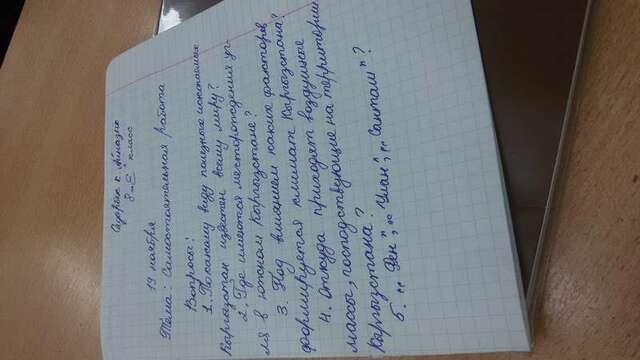 8-а класс
19 ноября
Тема: Самостоятельная работа
Вопросы:
1. По какому виду полезных ископаемых
Кыргызстан известен всему миру?
2. Где имеются месторождения уг-
ля в южном Кыргызстане?
3. Под влиянием каких факторов
формируется климат Кыргызстана?
4. Откуда приходят воздушные
массы, господствующие на территории
Кыргызстана?
5. "Фен", "Улан", "Санташ"?